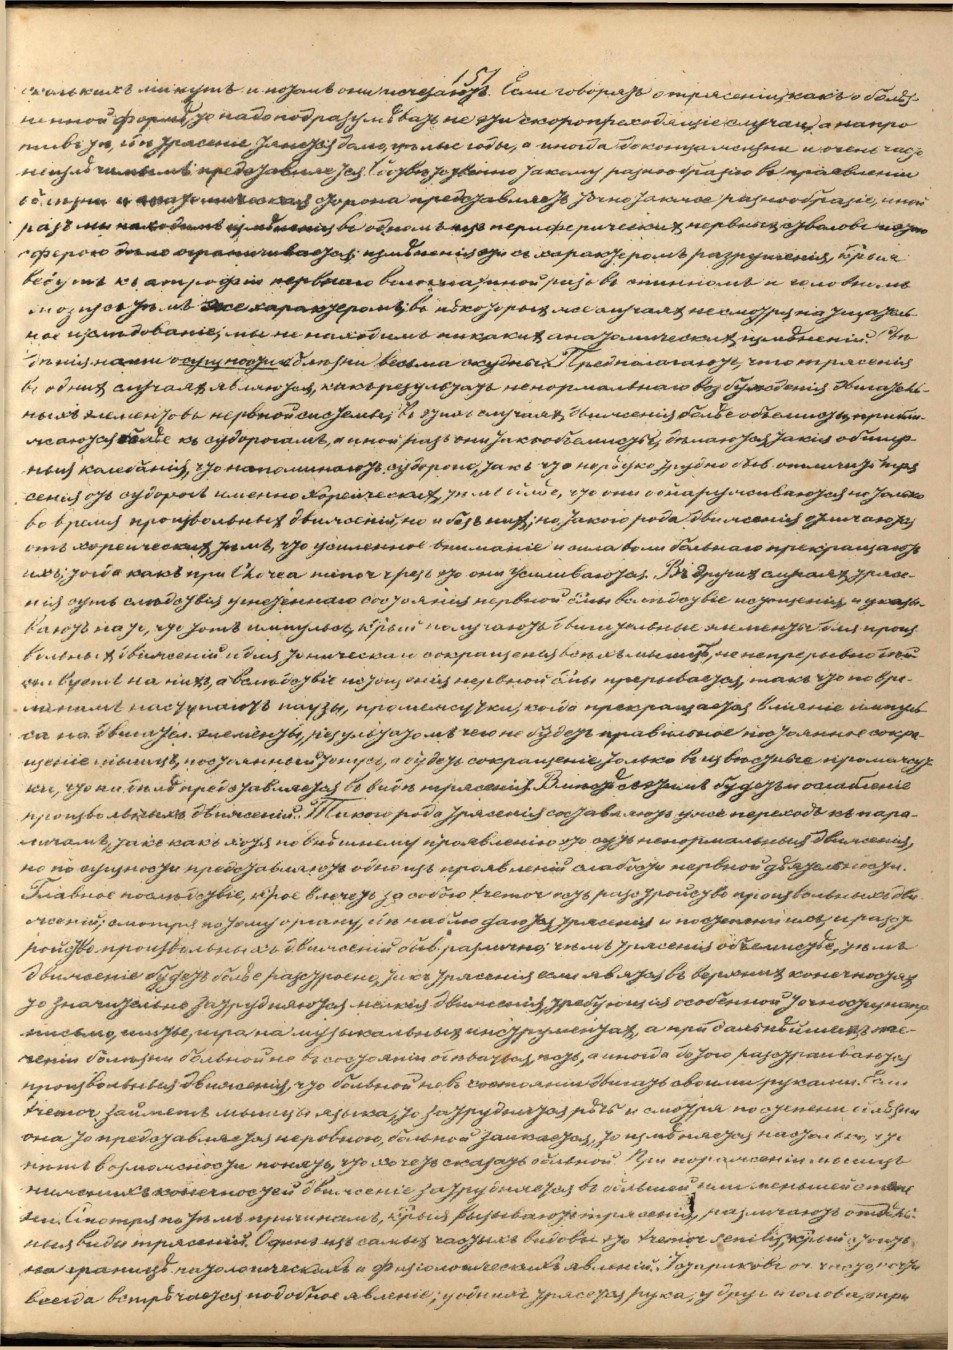 151
скольких минутъ и потомъ они исчезаютъ. Если говорятъ о трясеніи, какъ о болѣз-
ненной формѣ, то надо подразумѣвать не эти скоропреходящіе случаи, а напро
тивъ тѣ, гдѣ трясеніе тянется долго, цѣлые годы, а иногда до конца жизни и очень часто
неизлѣчимымъ представляется. Соотвѣтственно такому разнообразію въ проявленіи
болѣзни и анатомическая сторона представляетъ точно такое разнообразіе, иной
разъ мы находимъ измѣненія въ одномъ изъ периферическихъ нервныхъ стволовъ и этою
сферою дѣло ограничивается; измѣненія эти съ характеромъ разрушенія, котрыя
ведутъ къ атрофіи нервнаго волокна, иной разъ въ спинномъ и головномъ
мозгу съ тѣмъ же характеромъ; въ нѣкоторыхъ же случаяхъ не смотря на тщатель
ное изслѣдованіе, мы не находимъ никакихъ анатомическихъ измѣненій. Свѣ
дѣнія наши о сущности болѣзни весьма скудны. Предполагаютъ, что трясенія
въ однихъ случаяхъ являются, какъ результатъ ненормальнаго возбужденія двигатель-
ныхъ элементовъ нервной системы; въ этихъ случаяхъ движенія болѣе объемисты, прибли-
жаются болѣе къ судорогамъ, а иной разъ они такъ объемисты, дѣлаются такія обшир-
ныя колебанія, что напоминаютъ судорогу, такъ что нерѣдко трудно отличить тря
сенія отъ судорогъ именно хореическихъ, тѣмъ болѣе, что они обнаруживаются не только
во время произвольныхъ движеній, но и безъ нихъ; но такого рода движенія отличаются
отъ хореическихъ тѣмъ, что усиленное вниманіе и сила воли больнаго прекращаютъ
ихъ; тогда какъ при Chorea minor чрезъ это они усиливаются. Въ другихъ случаяхъ трясе-
нія суть слѣдствія угнетеннаго состоянія нервной с-мы вслѣдствіе истощенія, и указы-
ваютъ на то, что тотъ импульсъ, котрый получаютъ двигательные элементы для произ
вольныхъ движеній и для тоническаго сокращенія всѣхъ мышцъ, не непрерывно дѣй
ствуетъ на нихъ, а вслѣдствіе истощенія нервной с-мы прерывается, такъ что по вре-
менамъ наступаютъ паузы, промежутки, когда прекращается вліяніе импуль
са на двигател. элементы, результатомъ чего не будетъ правильное постоянное сокра-
щеніе мышцъ, постоянный тонусъ, а будетъ сокращеніе только въ извѣстные промежут
ки, что и представляется въ видѣ трясенія. Вмѣстѣ съ этимъ будетъ и ослабленіе
произвольныхъ движеній. Такого рода трясенія составляютъ уже переходъ къ пара-
личамъ, такъ какъ хотя по внѣшнему проявленію это суть ненормальныя движенія,
но по сущности представляютъ одно изъ проявленій слабости нервной дѣятельности.
Главное послѣдствіе, котрое влечетъ за собою tremor есть разстройство произвольныхъ дви
женій; смотря по тому органу, гдѣ наблюдаются трясенія и по степени ихъ, и разст
ройство произвольныхъ движеній будетъ различно, чѣмъ трясенія объемистѣе, тѣмъ
движеніе будетъ болѣе разстроено, такъ трясенія если явятся въ верхнихъ конечностяхъ
то значительно затрудняются мелкія движенія, требующія особенной точности, напр
письмо, шитье, игра на музыкальныхъ инструментахъ, а при дальнѣйшемъ те-
ченіи болѣзни больной не въ состояніи одѣваться, ѣсть, а иногда до того разстраиваются
произвольныя движенія, что больной не въ состояніи двигать своими руками. Если
tremor займетъ мышцы языка, то затрудняется рѣчь и смотря по степени болѣзни
она то представляется неровною, больной заикается, то измѣняется настолько, что
нѣтъ возможности понять, что хочетъ сказать больной. При пораженіи мышцъ
нижнихъ конечностей движеніе затрудняется въ большей или меньшей степе
ни. Смотря по тѣмъ причинамъ, котрыя вызываютъ трясенія, различаютъ отдѣль-
ные виды трясеній. Одинъ изъ самыхъ частыхъ видовъ это tremor senilis, котрый стоитъ
на границѣ патологическихъ и физіологическихъ явленій. У стариковъ оч. часто, почти
всегда встрѣчается подобное явленіе; у однихъ трясется рука, у друг. и голова, при